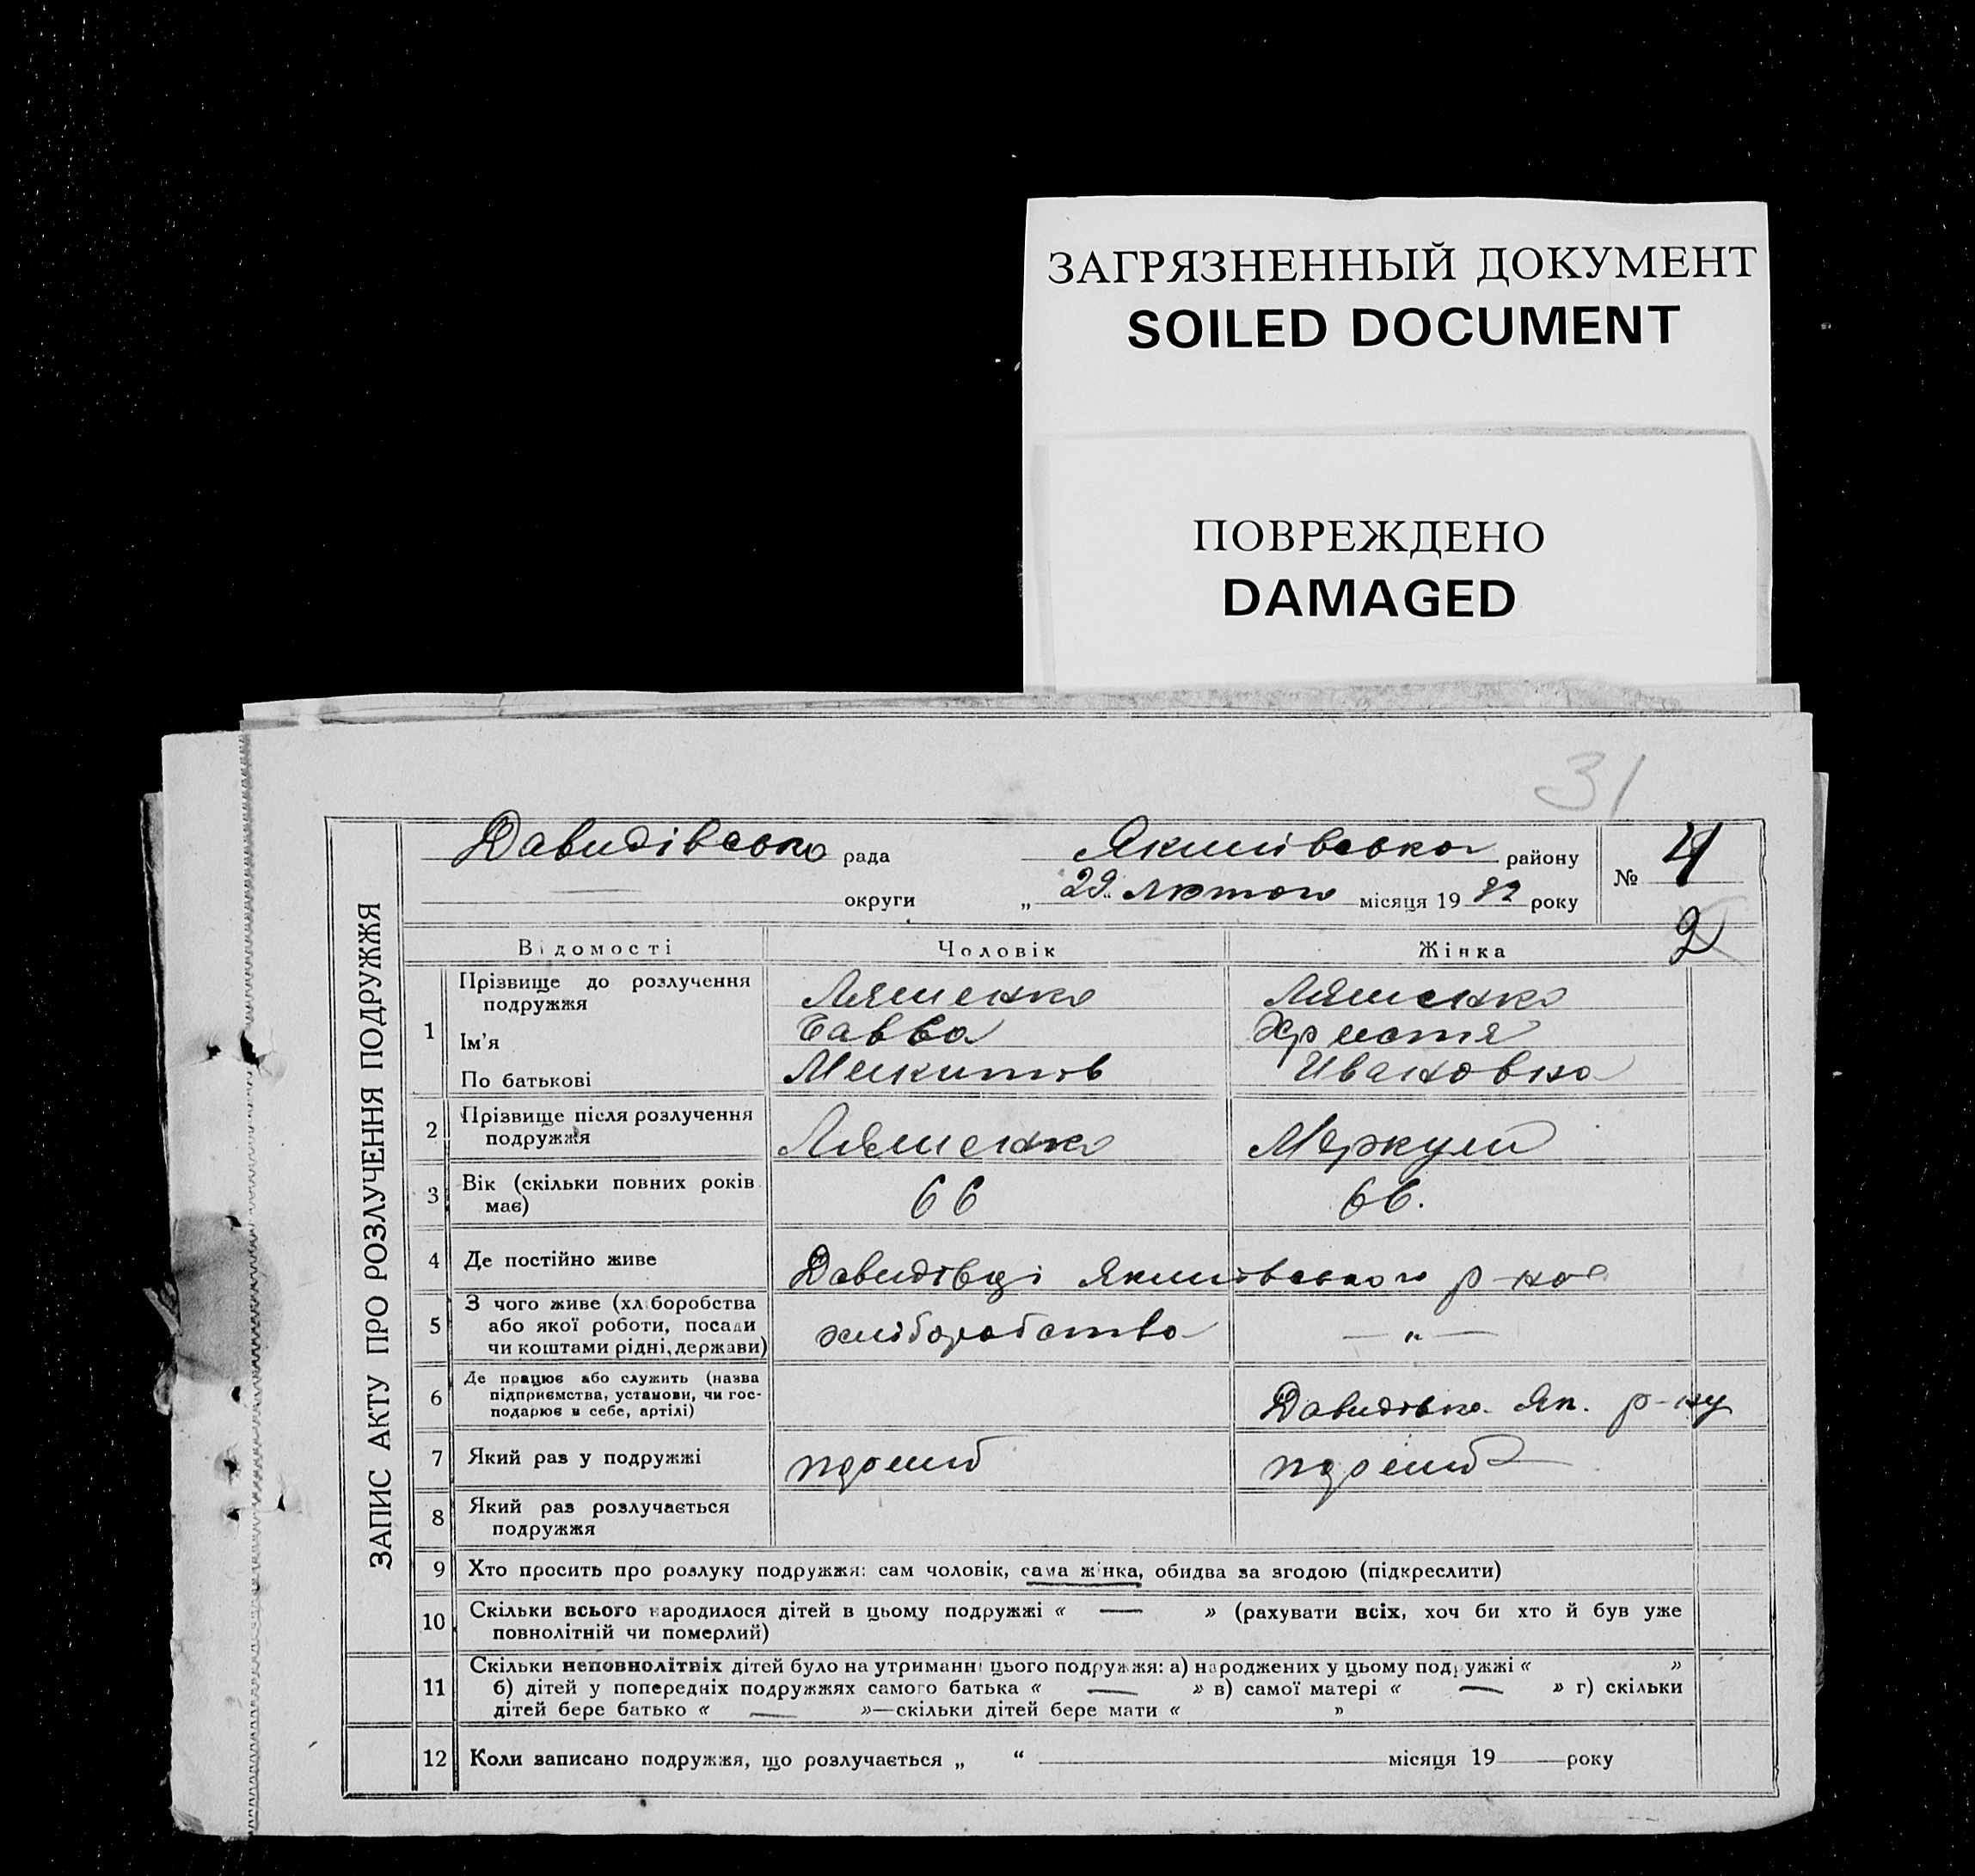 ЗАГРЯЗНЕННЫЙ ДОКУМЕНТ
SOILED DOCUMENT
ПОВРЕЖДЕНО
DAMAGED
31
ЗАПИС АКТУ ПРО РОЗЛУЧЕННЯ ПОДРУЖЖЯ
Давидівсько рада Якимівсько району № 4
округи „ 29 лютого місяця 19 32 року
2
Відомості Чоловік Жінка
1 Прізвище до розлучення подружжя Ляшенко Ляшенко
Ім'я Савва Христя
По батькові Микитов Ивановна
2 Прізвище після розлучення подружжя Ляшенко
3 Вік (скільки повних років має) 66 66.
4 Де постійно живе Давидівці Якимівського р-на
5 З чого живе (хліборобства або якої роботи, посади чи коштами рідні, держави) хліборобство — „ —
6 Де працює або служить (назва підприємства, установи, чи господарює в себе, артілі) Давидівка Як. р-ну
7 Який раз у подружжі
8 Який раз розлучається подружжя
9 Хто просить про розлуку подружжя: сам чоловік, сама жінка, обидва за згодою (підкреслити)
10 Скільки всього народилося дітей в цьому подружжі « — » (рахувати всіх, хоч би хто й був уже
повнолітній чи померлий)
11 Скільки неповнолітніх дітей було на утриманні цього подружжя: а) народжених у цьому подружжі « »
б) дітей у попередніх подружжях самого батька « — » в) самої матері « — » г) скільки
дітей бере батько « — »—скільки дітей бере мати « »
12 Коли записано подружжя, що розлучається „ “ місяця 19 року